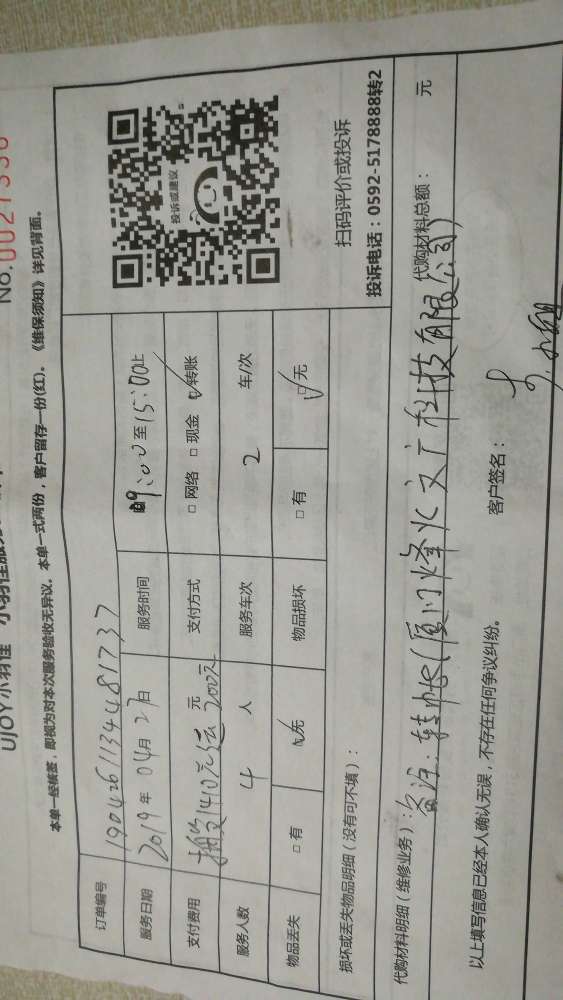 UJOY小羽佳
No.0027336
本单一经核签，即视为对本次服务验收无异议。本单一式两份，客户留存一份(红)。《维保须知》详见背面。
订单编号 1904261134481737
服务日期 2019年04月27日 服务时间 09:00至15:00止
支付费用 1410元 200元 元 支付方式 □网络 □现金 ☑转账
服务人数 4 人 服务车次 2 车/次
物品丢失 □有 ☑无 物品损坏 □有 ☑无
投诉或建议
扫码评价或投诉
投诉电话：0592-5178888转2
损坏或丢失物品明细（没有可不填）：
代购材料明细（维修业务）： 代购材料总额： 元
备注：转帐(厦门烽火文广科技有限公司)
以上填写信息已经本人确认无误，不存在任何争议纠纷。 客户签名：